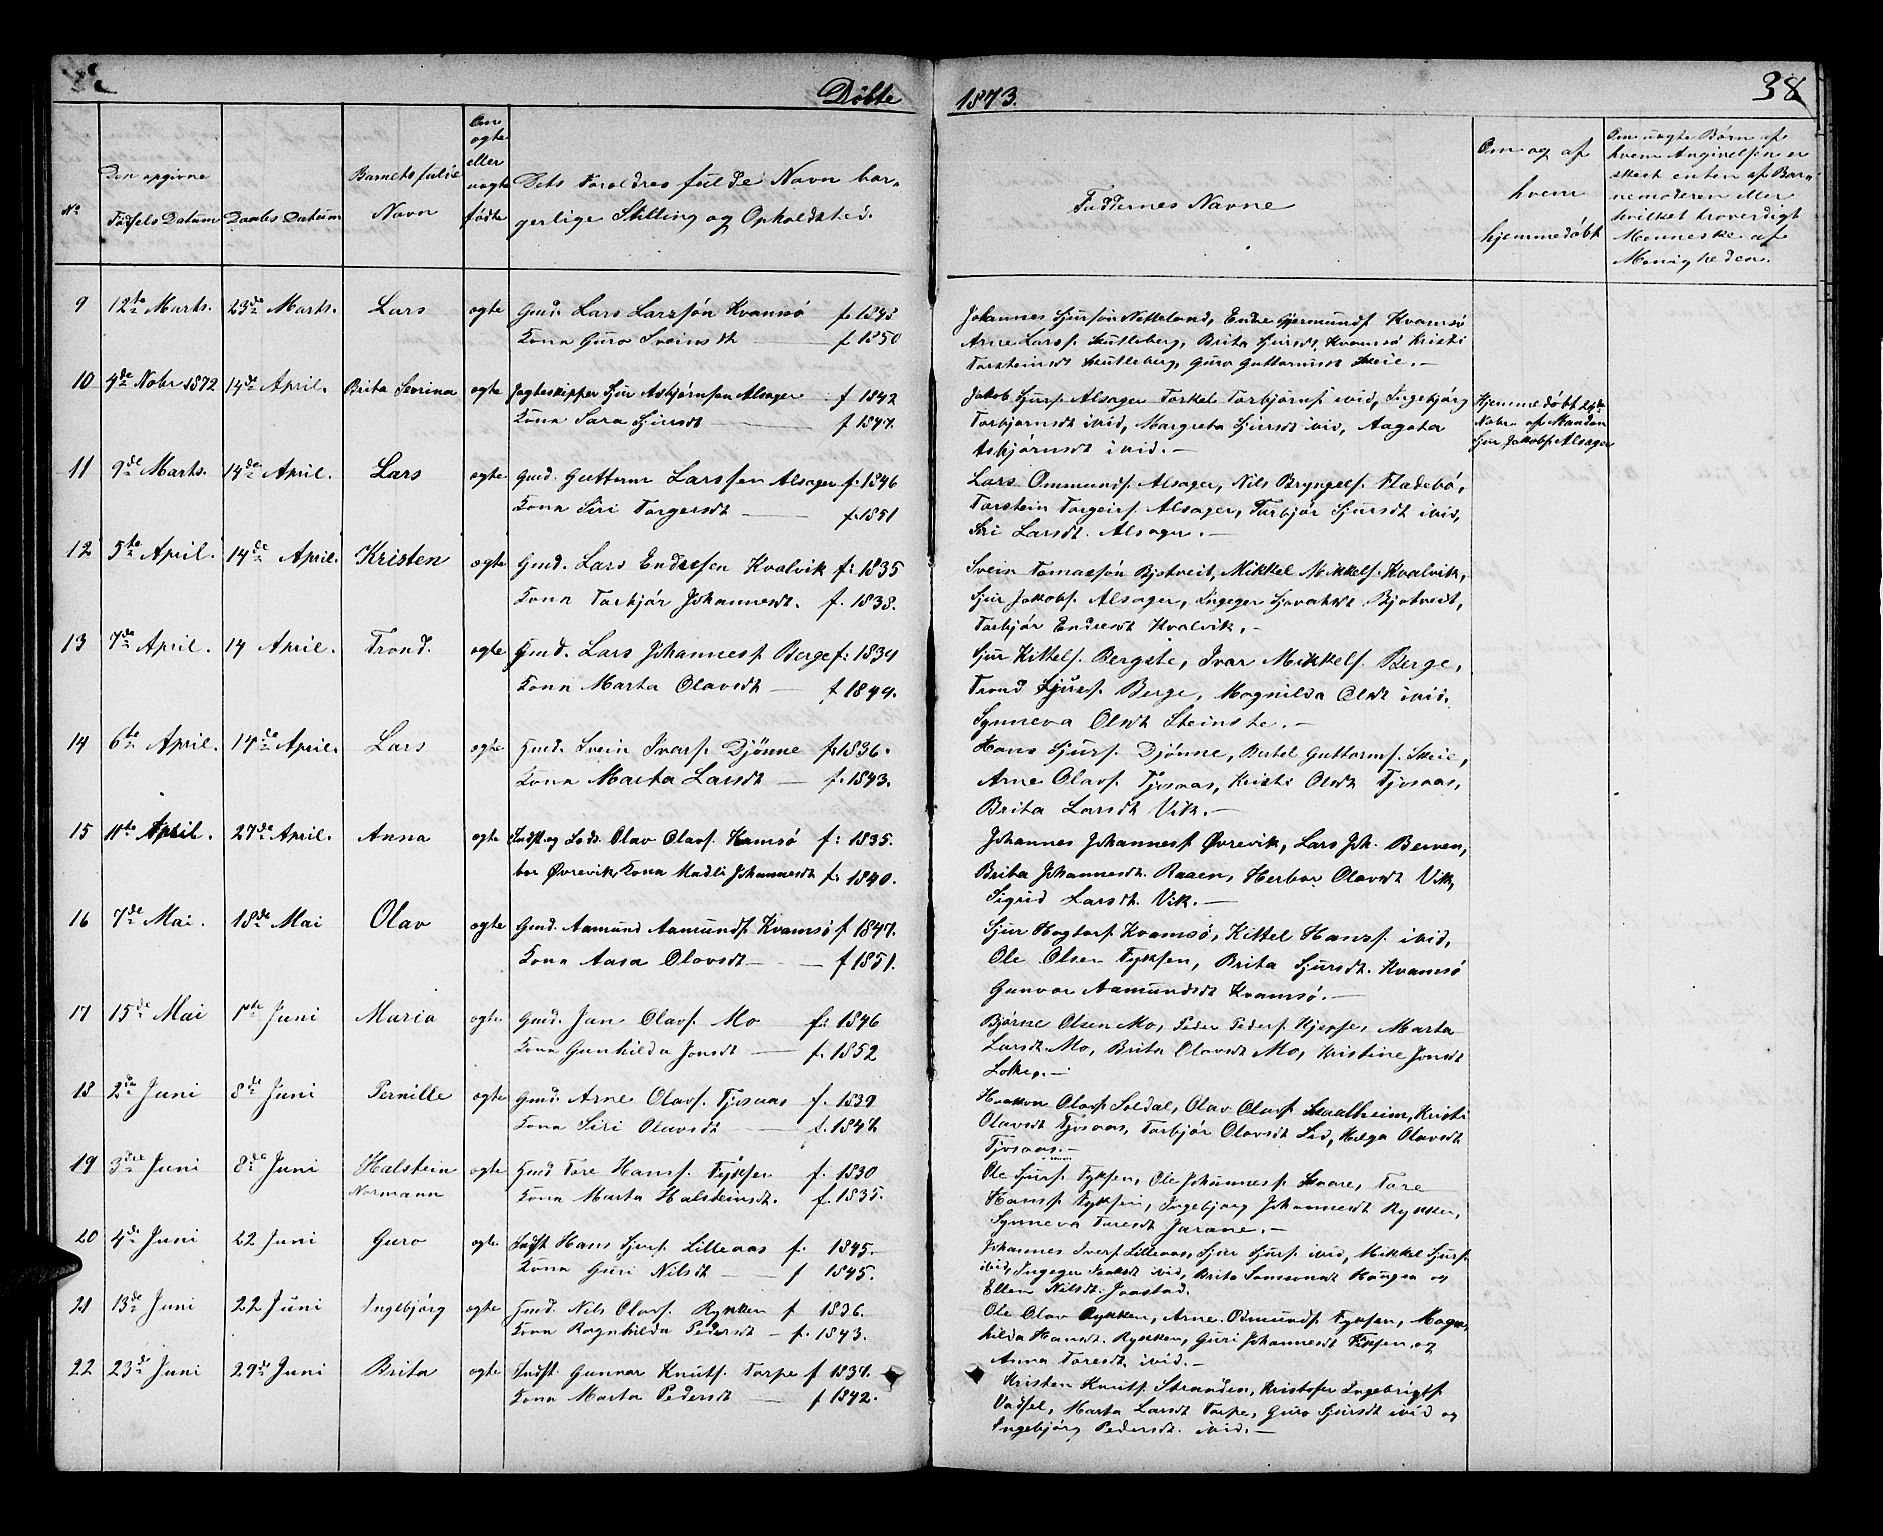 Döbte 1873. 38
No
Den opgivne
Födsels Datum
Daabs Datum
Barnets fulde
Navn
Om
ogte
eller
uogte
födte
Dets Foroldres fulde Navn bor-
gerlige Stilling og Opholdsted.
Faddernes Navne
Om og af
hvem
hjemmedöbt
Om uogte Börn af
hvem Angivelsen er
skeet enten af Bar-
nemoderen eller
hvilket troverdigt
Menneske af
Menigheden.
9 12te Marts. 23de Marts. Lars ogte Gmd. Lars Larssön Kvamsö f. 1845
Kona Guro Sveinsdt f. 1850
Johannes Sjursön Netteland, Endre Gjermunds. Kvamsö
Arne Larss. Skutleberg, Brita Sjursdt, Kvamsö Kristi
Torsteinsdt Skutleberg, Guro Guttormsdt Skeie.
10 4de Nobr 1872 14de April. Brita Severina ogte Jagteskipper Sjur Asbjörnsen Alsager f 1842
Kona Sara Sjursdt f 1847.
Jakob Sjurs. Alsager Torkel Torbjörns. ibid, Ingebjörg
Torbjörnsdt ibid, Margreta Sjursdt ibid, Aagata
Asbjörnsdt ibid.
Hjemmedöbt 24de
Nobr. af Manden
Sjur Jakobs. Alsager
11 9de Marts. 14de April. Lars ogte Gmd. Guttorm Larssen Alsager f. 1846
Kona Siri Torgersdt f. 1851
Lars Ommunds. Alsager, Nils Bryngels. Fladebö,
Torstein Torgeirs. Alsager, Torbjör Sjursdt ibid,
Siri Larsdt. Alsager.
12 5te April. 14de April. Kristen ogte Gmd. Lars Endresen Kvalvik f: 1835
Kona Torbjör Johannesdt. f. 1838.
Svein Tomassön Bjotveit, Mikkel Mikkels. Kvalvik,
Sjur Jakobs. Alsager, Ingeger Sjovatsdt Bjotveit,
Torbjör Endresdt Kvalvik.
13 7de April. 14 April. Trond. ogte Gmd. Lars Johanness. Berge f: 1834
Kona Marta Olavsdt f 1849.
Sjur Kittels. Bergste, Ivar Mikkels. Berge,
Trond Sjurs. Berge, Magnilda Olsdt ibid.
Synneva Olsdt Steinste.
14 6te April. 14de April. Lars ogte Gmd. Svein Ivars. Djönne f. 1836.
Kona Marta Larsdt f. 1843.
Hans Sjurs. Djönne, Bertel Guttorms. Skeie,
Arne Olavs. Tjosaas, Kristi Olsdt Tjosaas,
Brita Larsdt Vik.
15 11te April. 27de April. Anna ogte Indst. og Lods. Olav Olavs. Kvamsö f: 1835.
bor Övrevik, Kona Madli Johannesdt f. 1840.
Johannes Johanness. Övrevik, Lars Joh. Berven,
Brita Johannesdt. Raaen, Herbor Olavsdt Vik,
Sigrid Larsdt. Vik.
16 7de Mai. 18de Mai Olav ogte Gmd. Aamund Aamunds. Kvamsö f 1847.
Kona Aasa Olavsdt f 1851.
Sjur Hogtors. Kvamsö, Kittel Hanss. ibid,
Ole Olsen Tyksen, Brita Sjursdt. Kvamsö
Gunvor Aamundsdt Kvamsö.
17 15de Mai 1ste Juni Maria ogte Gmd. Jan Olavs. Mo f: 1846
Kona Gunhilda Jonsdt f. 1852
Björne Olsen Mo, Peder Peders. Hjepse, Marta
Larsdt. Mo, Brita Olavsdt Mo, Kristine Jonsdt
Lokke.
18 2de Juni 8de Juni Pernille ogte Gmd. Arne Olavs. Tjosaas f. 1839
Kona Siri Olavsdt f. 1847
Haakon Olavs. Soldal, Olav Olavs. Skaalheim, Kristi
Olavsdt Tjosaas, Torbjör Olavsdt Lid, Helga Olavsdt
Tjosaas.
19 3die Juni 8de Juni Halstein ogte Gmd. Tore Hanss. Tyksen f. 1830
Normann Kona Marta Halsteinsdt. f. 1835.
Ole Sjurs. Tyksen, Ole Johanness. Skaare, Tore
Hanss. Tyksen, Ingebjorg Johannesdt Rykken,
Synneva Toresdt Jarane.
20 4de Juni 22 Juni Guro ogte Indst Hans Sjurs. Lilleaas f. 1845.
Kona Guri Nilsdt f 1845.
Johannes Ivers. Lilleaas, Sjur Sjurs. ibid, Mikkel Sjurs.
ibid, Ingeger Isaksdt ibid, Brita Samsonsdt Haugen og
Ellen Nilsdt. Joastad.
21 13de Juni 22 Juni Ingebjörg ogte Gmd. Nils Olavs. Rykken f 1836.
Kona Ragnhilda Pedersdt f. 1843.
Ole Olav Rykken, Arne Odmunds. Tyksen, Magn-
hilda Hansdt. Rykken, Guri Johannesdt Tyksen og
Anna Toresdt. ibid.
22 23de Juni 29de Juni Brita ogte Indst. Gunnar Knuts. Torpe f 1834.
Kona Marta Pedersdt f 1842.
Kristen Knuts. Stranden, Kristofer Ingebrigts.
Vadsel, Marta Larsdt Torpe, Guro Sjursdt ibid og
Ingebjörg Pedersdt. ibid.